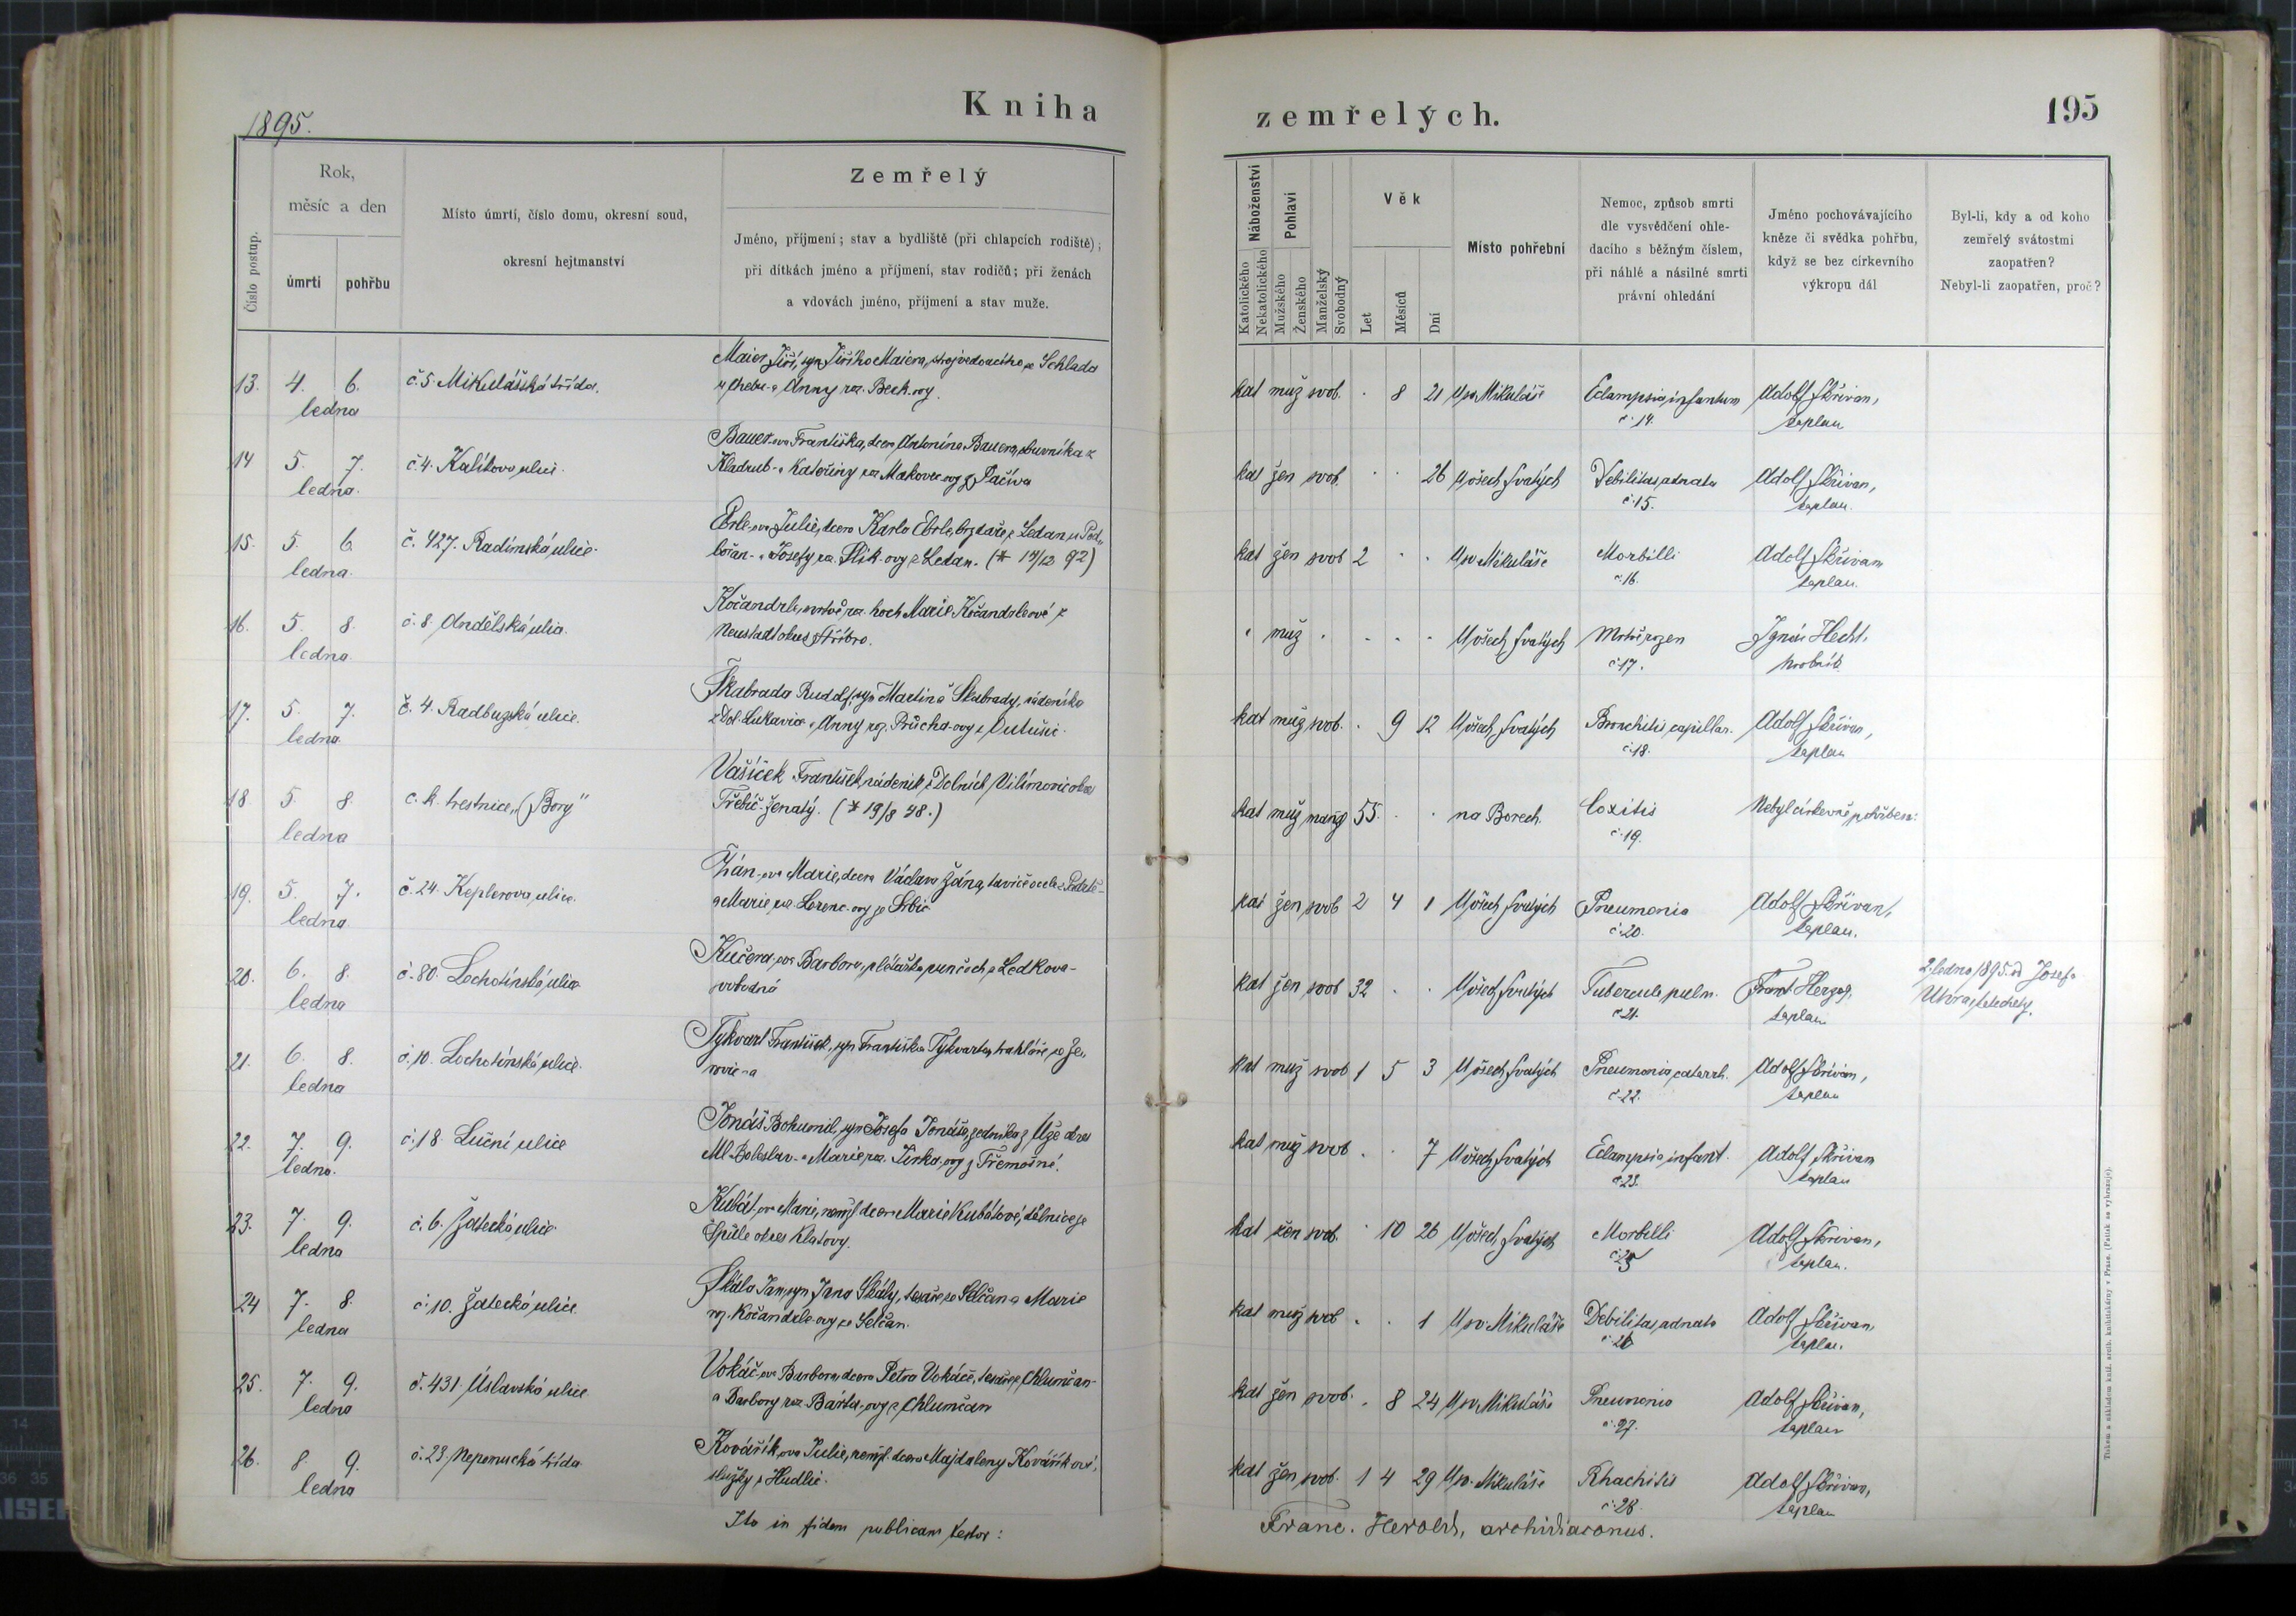 1895.
Kniha
zemřelých.
195
Číslo postup.
Rok,
měsíc a den
úmrtí
pohřbu
Místo úmrtí, číslo domu, okresní soud,
okresní hejtmanství
Zemřelý
Jméno, příjmení; stav a bydliště (při chlapcích rodiště);
při dítkách jméno a příjmení, stav rodičů; při ženách
a vdovách jméno, příjmení a stav muže.
Náboženství
Katolického
Nekatolického
Pohlaví
Mužského
Ženského
Manželský
Svobodný
Věk
Let
Měsíců
Dní
Místo pohřební
Nemoc, způsob smrti
dle vysvědčení ohle-
dacího s běžným číslem,
při náhlé a násilné smrti
právní ohledání
Jméno pochovávajícího
kněze či svědka pohřbu,
když se bez církevního
výkropu dál
Byl-li, kdy a od koho
zemřelý svátostmi
zaopatřen?
Nebyl-li zaopatřen, proč?
13. 4. 6. ledna č. 5 Mikulášská třída.
Maier Jiří, syn Jiřího Maiera, strojvedoucího ze Schlada
u Chebu a Anny roz. Beck-ovy.
kat muž svob. . 8 21 U sv. Mikuláše Eclampsia infantum Adolf Skřivan,
č. 14. kaplan
14 5. 7. ledna. č 4. Kalikova ulice.
Bauer-ova Františka, dcera Antonína Bauera, obuvníka z
Kladrub a Kateřiny roz. Makovec-ovy z
kat žen svob. . . 26 U všech Svatých Debilitas adnata Adolf Skřivan,
č. 15. kaplan.
15. 5. 6. ledna. č. 427. Radimská ulice.
Ebrle-ova Julie, dcera Karla Ebrle, z Ledan u Pod-
bořan a Josefy roz. z Ledan. (* 92)
kat žen svob 2 . . U sv. Mikuláše Morbilli Adolf Skřivan
č. 16. kaplan.
16. 5. 8. ledna. č. 8 Andělská ulice.
Kočandrle, mrtvě roz. hoch Marie Kočandrlové z
Neustadt okres Stříbro.
. muž . . . . U všech Svatých Mrtvě rozen Ignác Hecht,
č. 17. hrobník
17. 5. 7. ledna. č. 4. Radbuzská ulice.
Škabrada Rudolf, syn Martina Škabrady, nádeníka
z Dol. Lukavice a Anny roz. Průcha-ovy z
kat muž svob. . 9 12 U všech Svatých Bronchitis capillar. Adolf Skřivan,
č. 18. kaplan
18 5. 8. ledna c. k. trestnice „(Bory"
Vašíček František, nádeník z Dolních Vilímovic okres
Třebíč, ženatý. (* 19/8 .)
kat muž manž 55. . . na Borech. Coxitis Nebyl církevně pohřben.
č. 19.
19. 5. 7. ledna. č. 24. Keplerova ulice.
Žán-ova Marie, dcera Václava Žána, taviče ocele z
a Marie roz. Lorenc-ovy ze Srbic
kat žen svob 2 4 1 U všech Svatých Pneumonia Adolf Skřivan,
č. 20. kaplan.
20. 6. 8. ledna č. 80. Lochotínská ulice
Kučera-ova Barbora, pletařka punčoch z Ledkova-
svobodná
kat žen svob 32 . . U všech Svatých Tubercula pulm. Frant Herzog,
č. 21. kaplan
2. ledna 1895. od Josefa
21. 6. 8. ledna č. 10. Lochotínská ulice.
Tykvart František, syn Františka Tykvarta, truhláře, ze
kat muž svob 1 5 3 U všech Svatých Pneumonia catarrh. Adolf Skřivan,
č. 22. kaplan
22. 7. 9. ledna. č. 18. Luční ulice
Jonáš Bohumil, syn Josefa Jonáše, zedníka z okres
Ml. Boleslav a Marie roz. Jirka-ovy z Třemošné.
kat muž svob . . 7 U všech Svatých Eclampsia infant. Adolf Skřivan
č. 23. kaplan
23. 7. 9. ledna č. 6. Žatecká ulice.
Kubát-ova Marie, nemž. dcera Marie Kubátové, dělnice ze
Špůle okres Klatovy.
kat žen svob. . 10 26 U všech Svatých Morbilli Adolf Skřivan,
č. 25 kaplan.
24 7. 8. ledna č. 10. Žatecká ulice.
Skála Jan, syn Jana Skály, tesaře ze Selčan a Marie
roz. Kočandrle-ovy ze Selčan.
kat muž svob . . 1 U sv. Mikuláše Debilitas adnata Adolf Skřivan,
č. 26 kaplan.
25. 7. 9. ledna č. 431 Úslavská ulice
Vokáč-ova Barbora, dcera Petra Vokáče, tesaře z Chlumčan-
a Barbory roz. Bárta-ovy z Chlumčan
kat žen svob. . 8 24 U sv. Mikuláše Pneumonia Adolf Skřivan,
č. 27. kaplan
26. 8 9. ledna č. 23. Nepomucká třída
Kovářík-ova Julie, nemž. dcera Majdaleny Kovaříkové,
služky z Hudlic.
kat žen svob. 1 4 29 U sv. Mikuláše Rhachitis Adolf Skřivan,
č. 28. kaplan
Ita in fidem publicam testor:
Franc. Herold, archidiaconus.